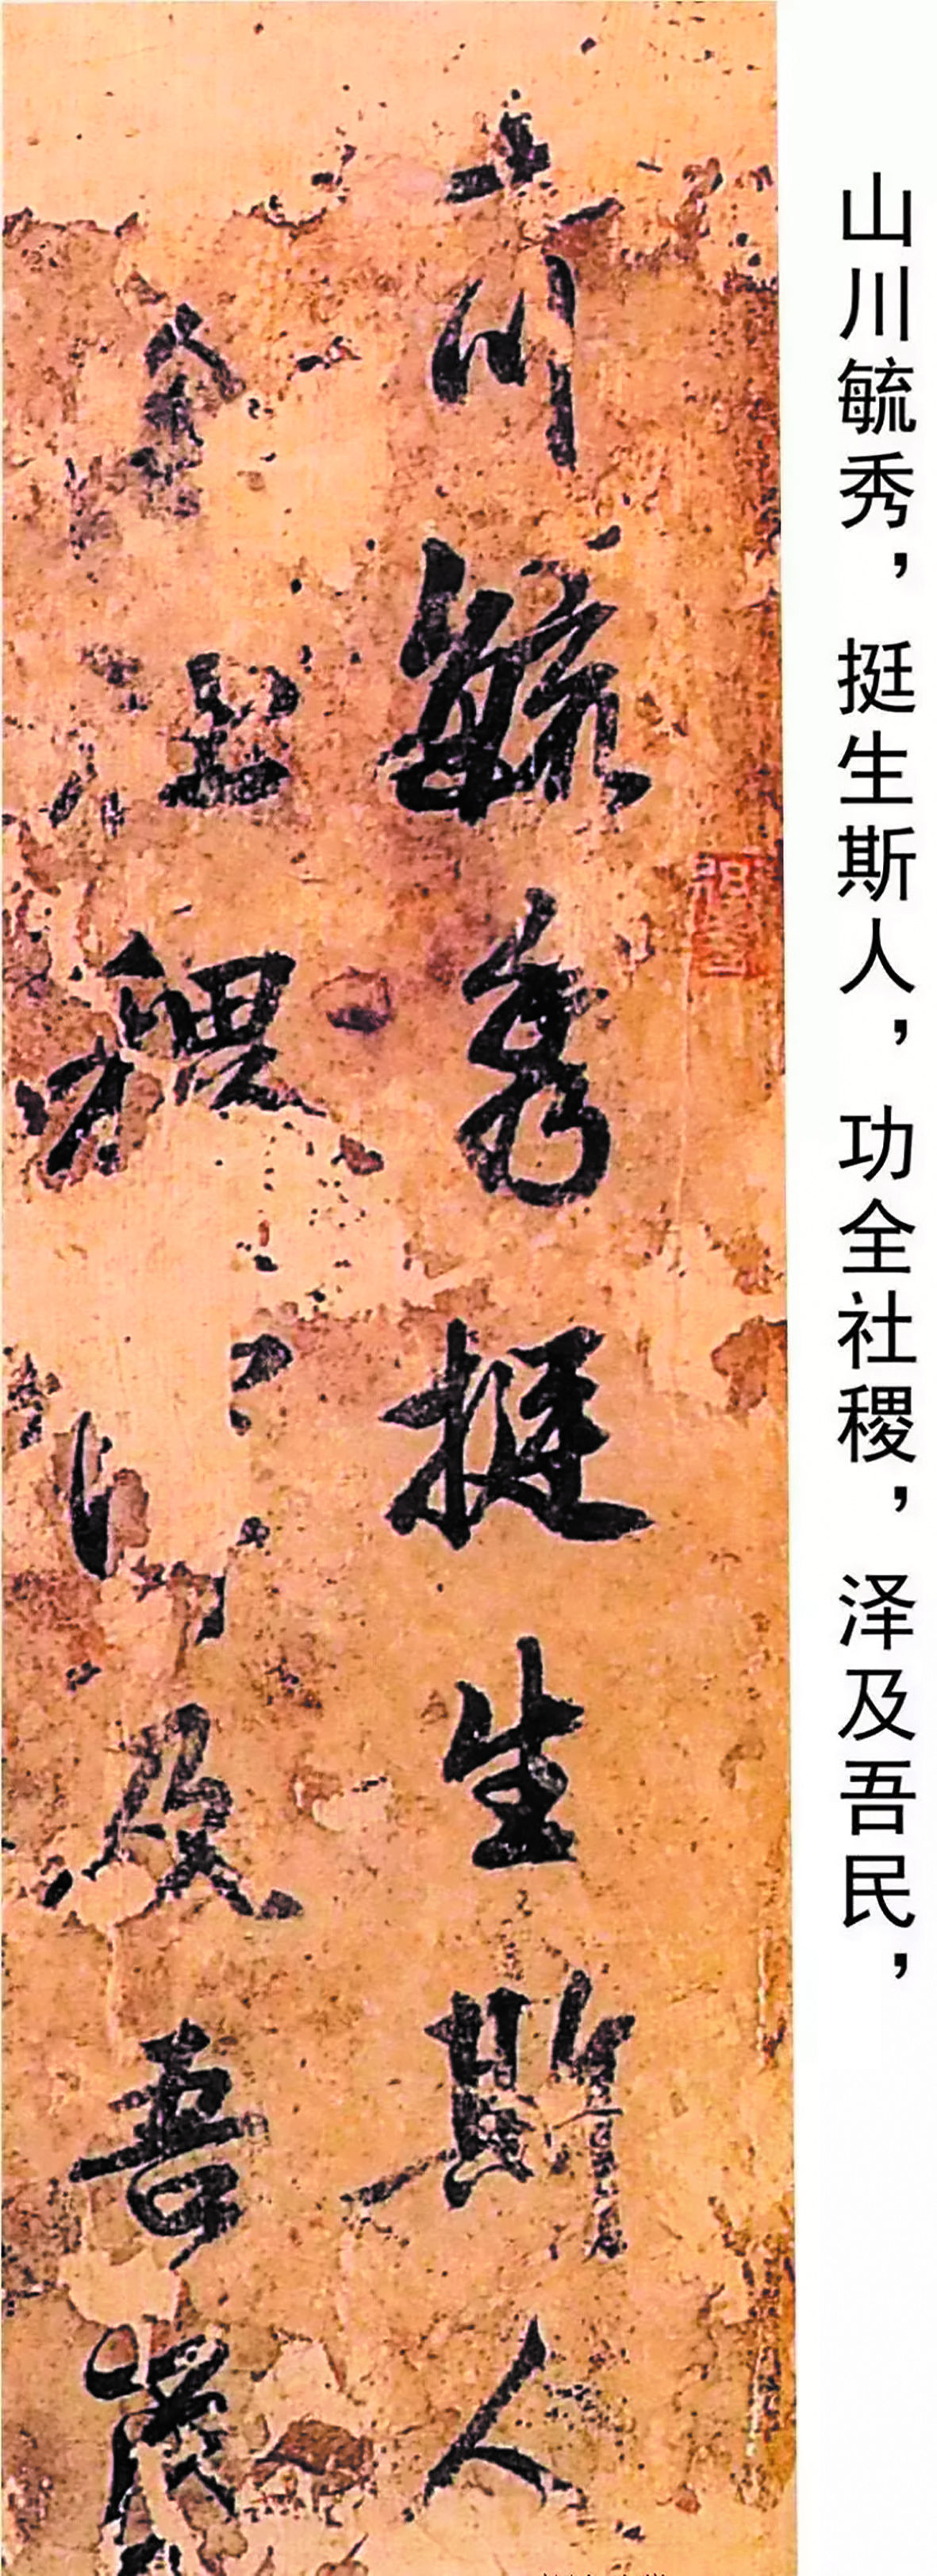 山川毓秀，挺生斯人，功全社稷，泽及吾民，
山川毓秀挺生斯人
全社稷及吾